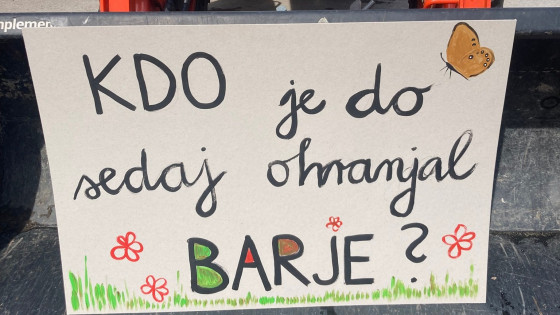 KDO je do
sedaj ohranjal
BARJE?